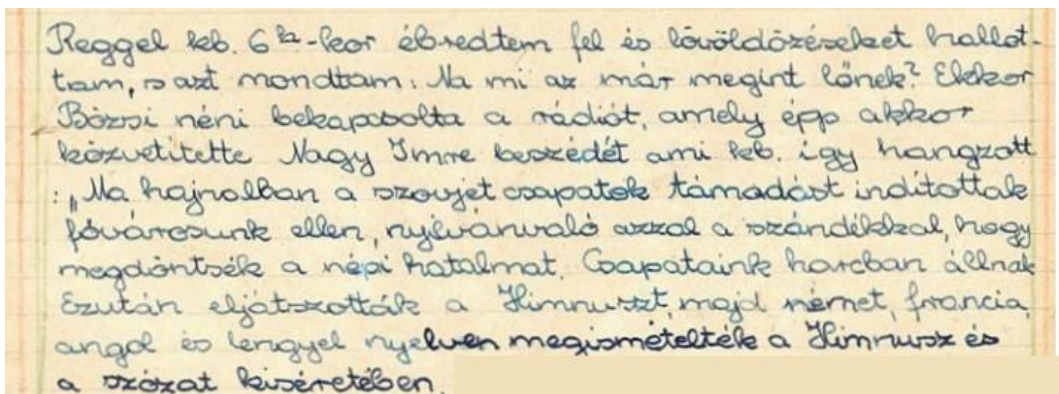 Reggel kb. 6 h-kor ébredtem fel és lövöldözéseket hallot-
tam, s azt mondtam: Na mi az már megint lőnek? Ekkor
Bözsi néni bekapcsolta a rádiót, amely épp akkor
közvetitette Nagy Imre beszédét ami kb. így hangzott
: „Ma hajnalban a szovjet csapatok támadást indítottak
fővárosunk ellen, nyilvánvaló azzal a szándékkal, hogy
megdöntsék a népi hatalmat. Csapataink harcban állnak
Ezután eljátszották a Himnuszt, majd német, francia,
angol és lengyel nyelven megismételték a Himnusz és
a szózat kiséretében.